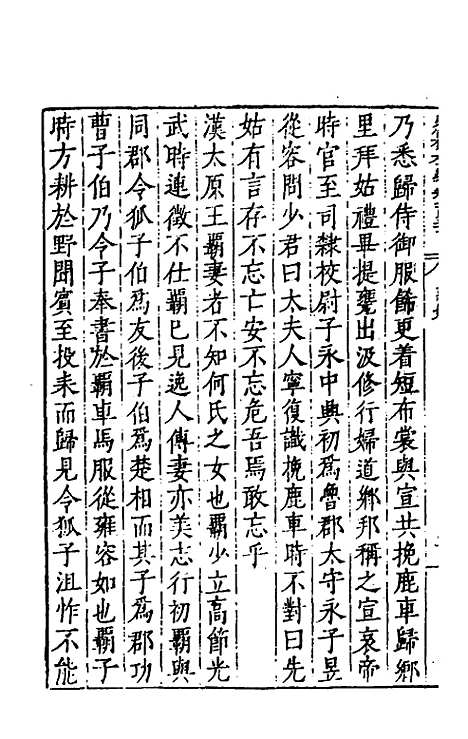 乃悉歸侍御服飾更着短布裳與宣共挽鹿車歸鄉
里拜姑禮畢提甕出汲修行婦道鄉邦稱之宣哀帝
時官至司隸校尉子永中興初爲魯郡太守永子昱
從容問少君曰太夫人寧復識挽鹿車時不對曰先
姑有言存不忘亡安不忘危吾焉敢忘乎
漢太原王霸妻者不知何氏之女也霸少立高節光
武時連徵不仕霸已見逸人傳妻亦美志行初霸與
同郡令狐子伯爲友後子伯爲楚相而其子爲郡功
曹子伯乃令子奉書於霸車馬服從雍容如也霸子
時方耕於野聞賓至投耒而歸見令狐子沮怍不能